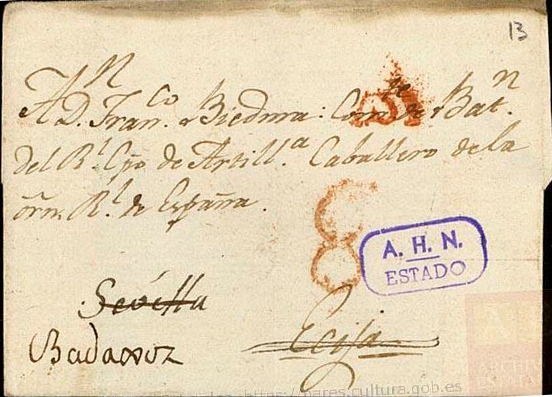 13
A D.n Fran.co Biedma: Com.te de Bat.n
del R.l Cpo de Artill.a Caballero de la
órn. R.l de España.
8
A. H. N.
ESTADO
Sevilla
Ecija
Badaxoz
https://pares.cultura.gob.es